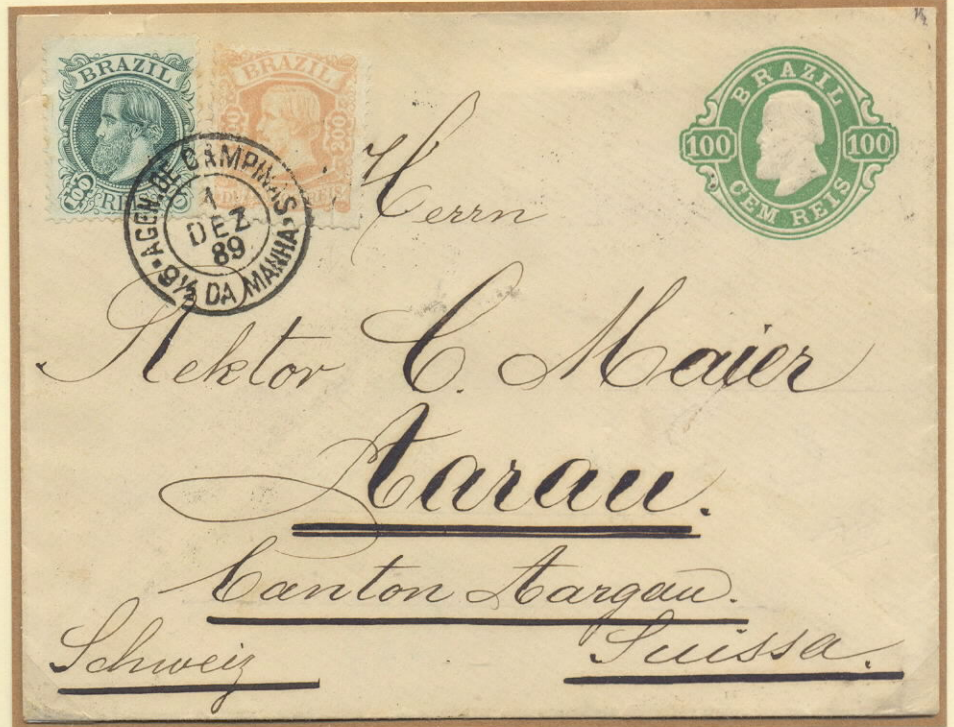 BRAZIL
BRAZIL
200
AGEN. DE CAMPINAS
1
DEZ
89
9½ DA MANHA
BRAZIL
100 100
CEM REIS
Herrn
Rektor C. Maier
Aarau.
Canton Aargau.
Schweiz Suissa.